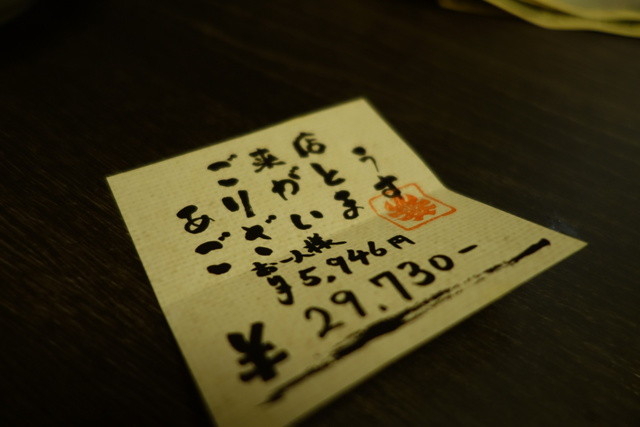 ご来店
ありがとう
ございます
お一人様
¥5,946円
¥29,730-